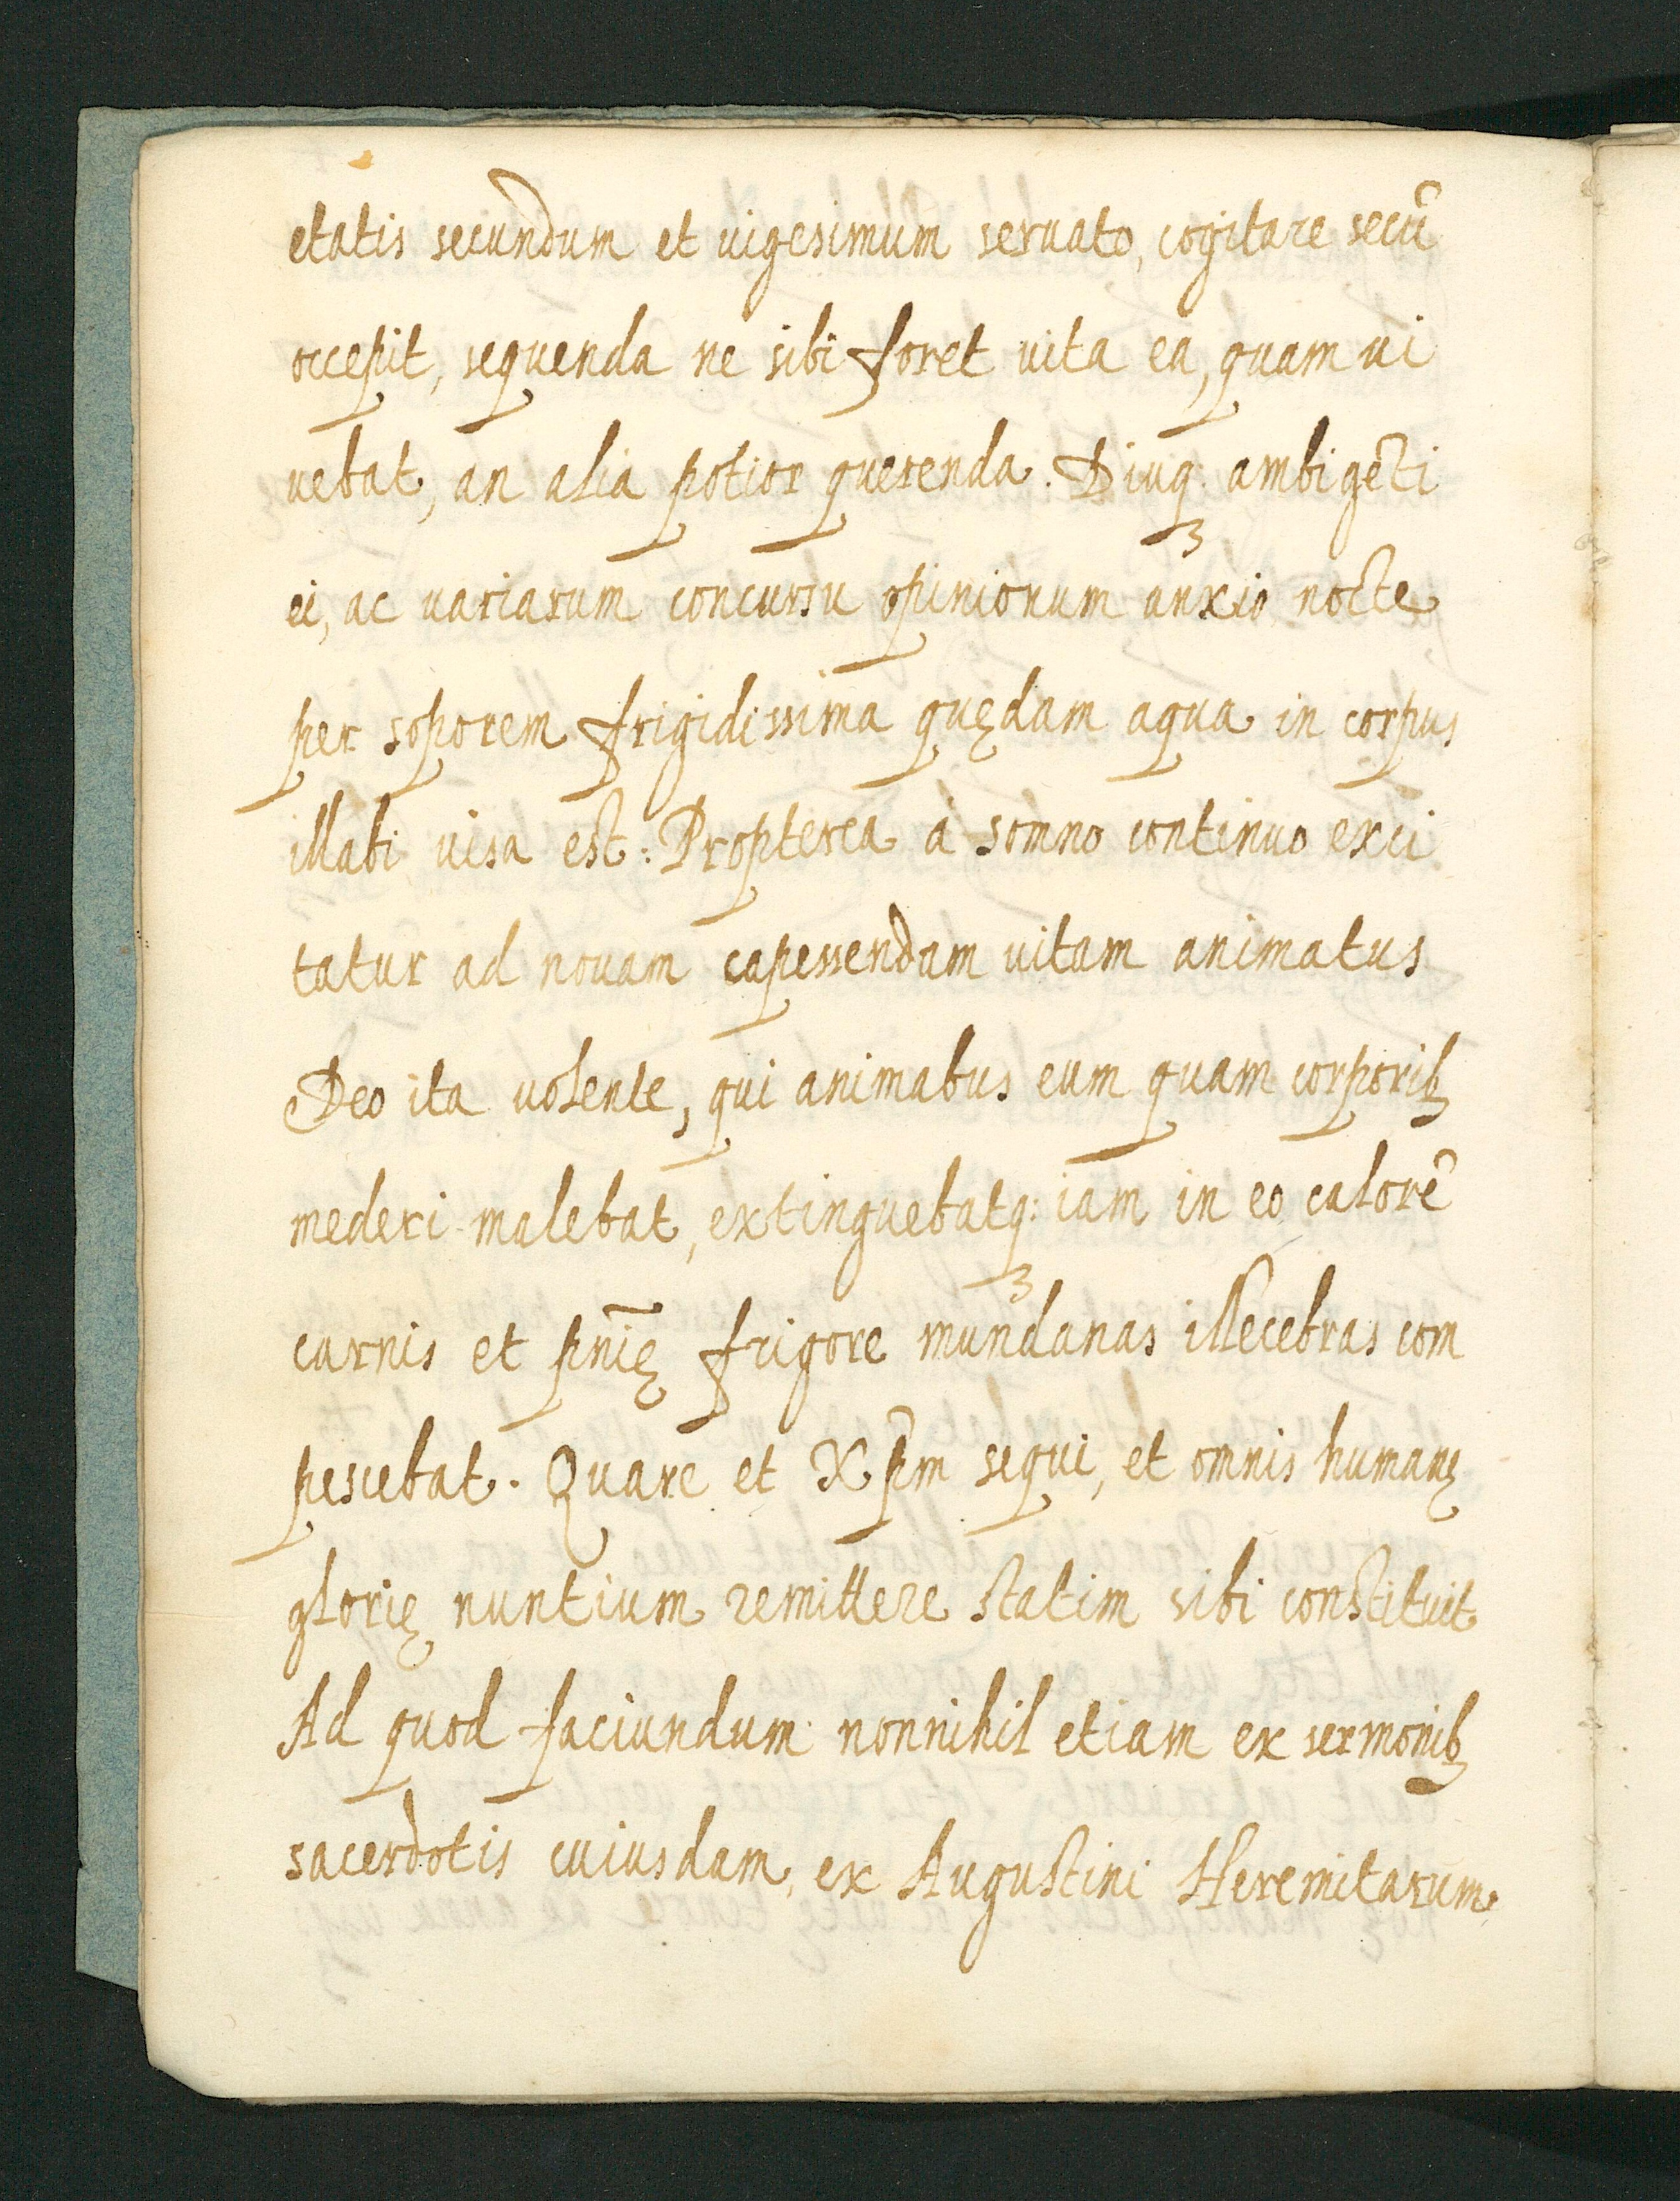 etatis secundum et uigesimum seruato, cogitare secū
occepit, sequenda ne sibi foret uita ea, quam ui
uebat, an alia potior querenda. Diuq́ꝫ ambigẽti
ei, ac uariarum concursu opinionum anxio nocte
per soporem frigidissima quędam aqua in corpus
illabi uisa est: Propterea à somno continuo exci
tatur ad nouam capessendam uitam animatus
Deo ita uolente, qui animabus eum quam corporibꝫ
mederi malebat, extinguebatqꝫ: iam in eo calorē
carnis et pn̄ię frigore mundanas illecebras com
pescebat. Quare et Xp̄m sequi, et omnis humanę
glorię nuntium remittere statim sibi constituit
Ad quod faciundum nonnihil etiam ex sermonibꝫ
sacerdotis cuiusdam, ex Augustini Heremitarum